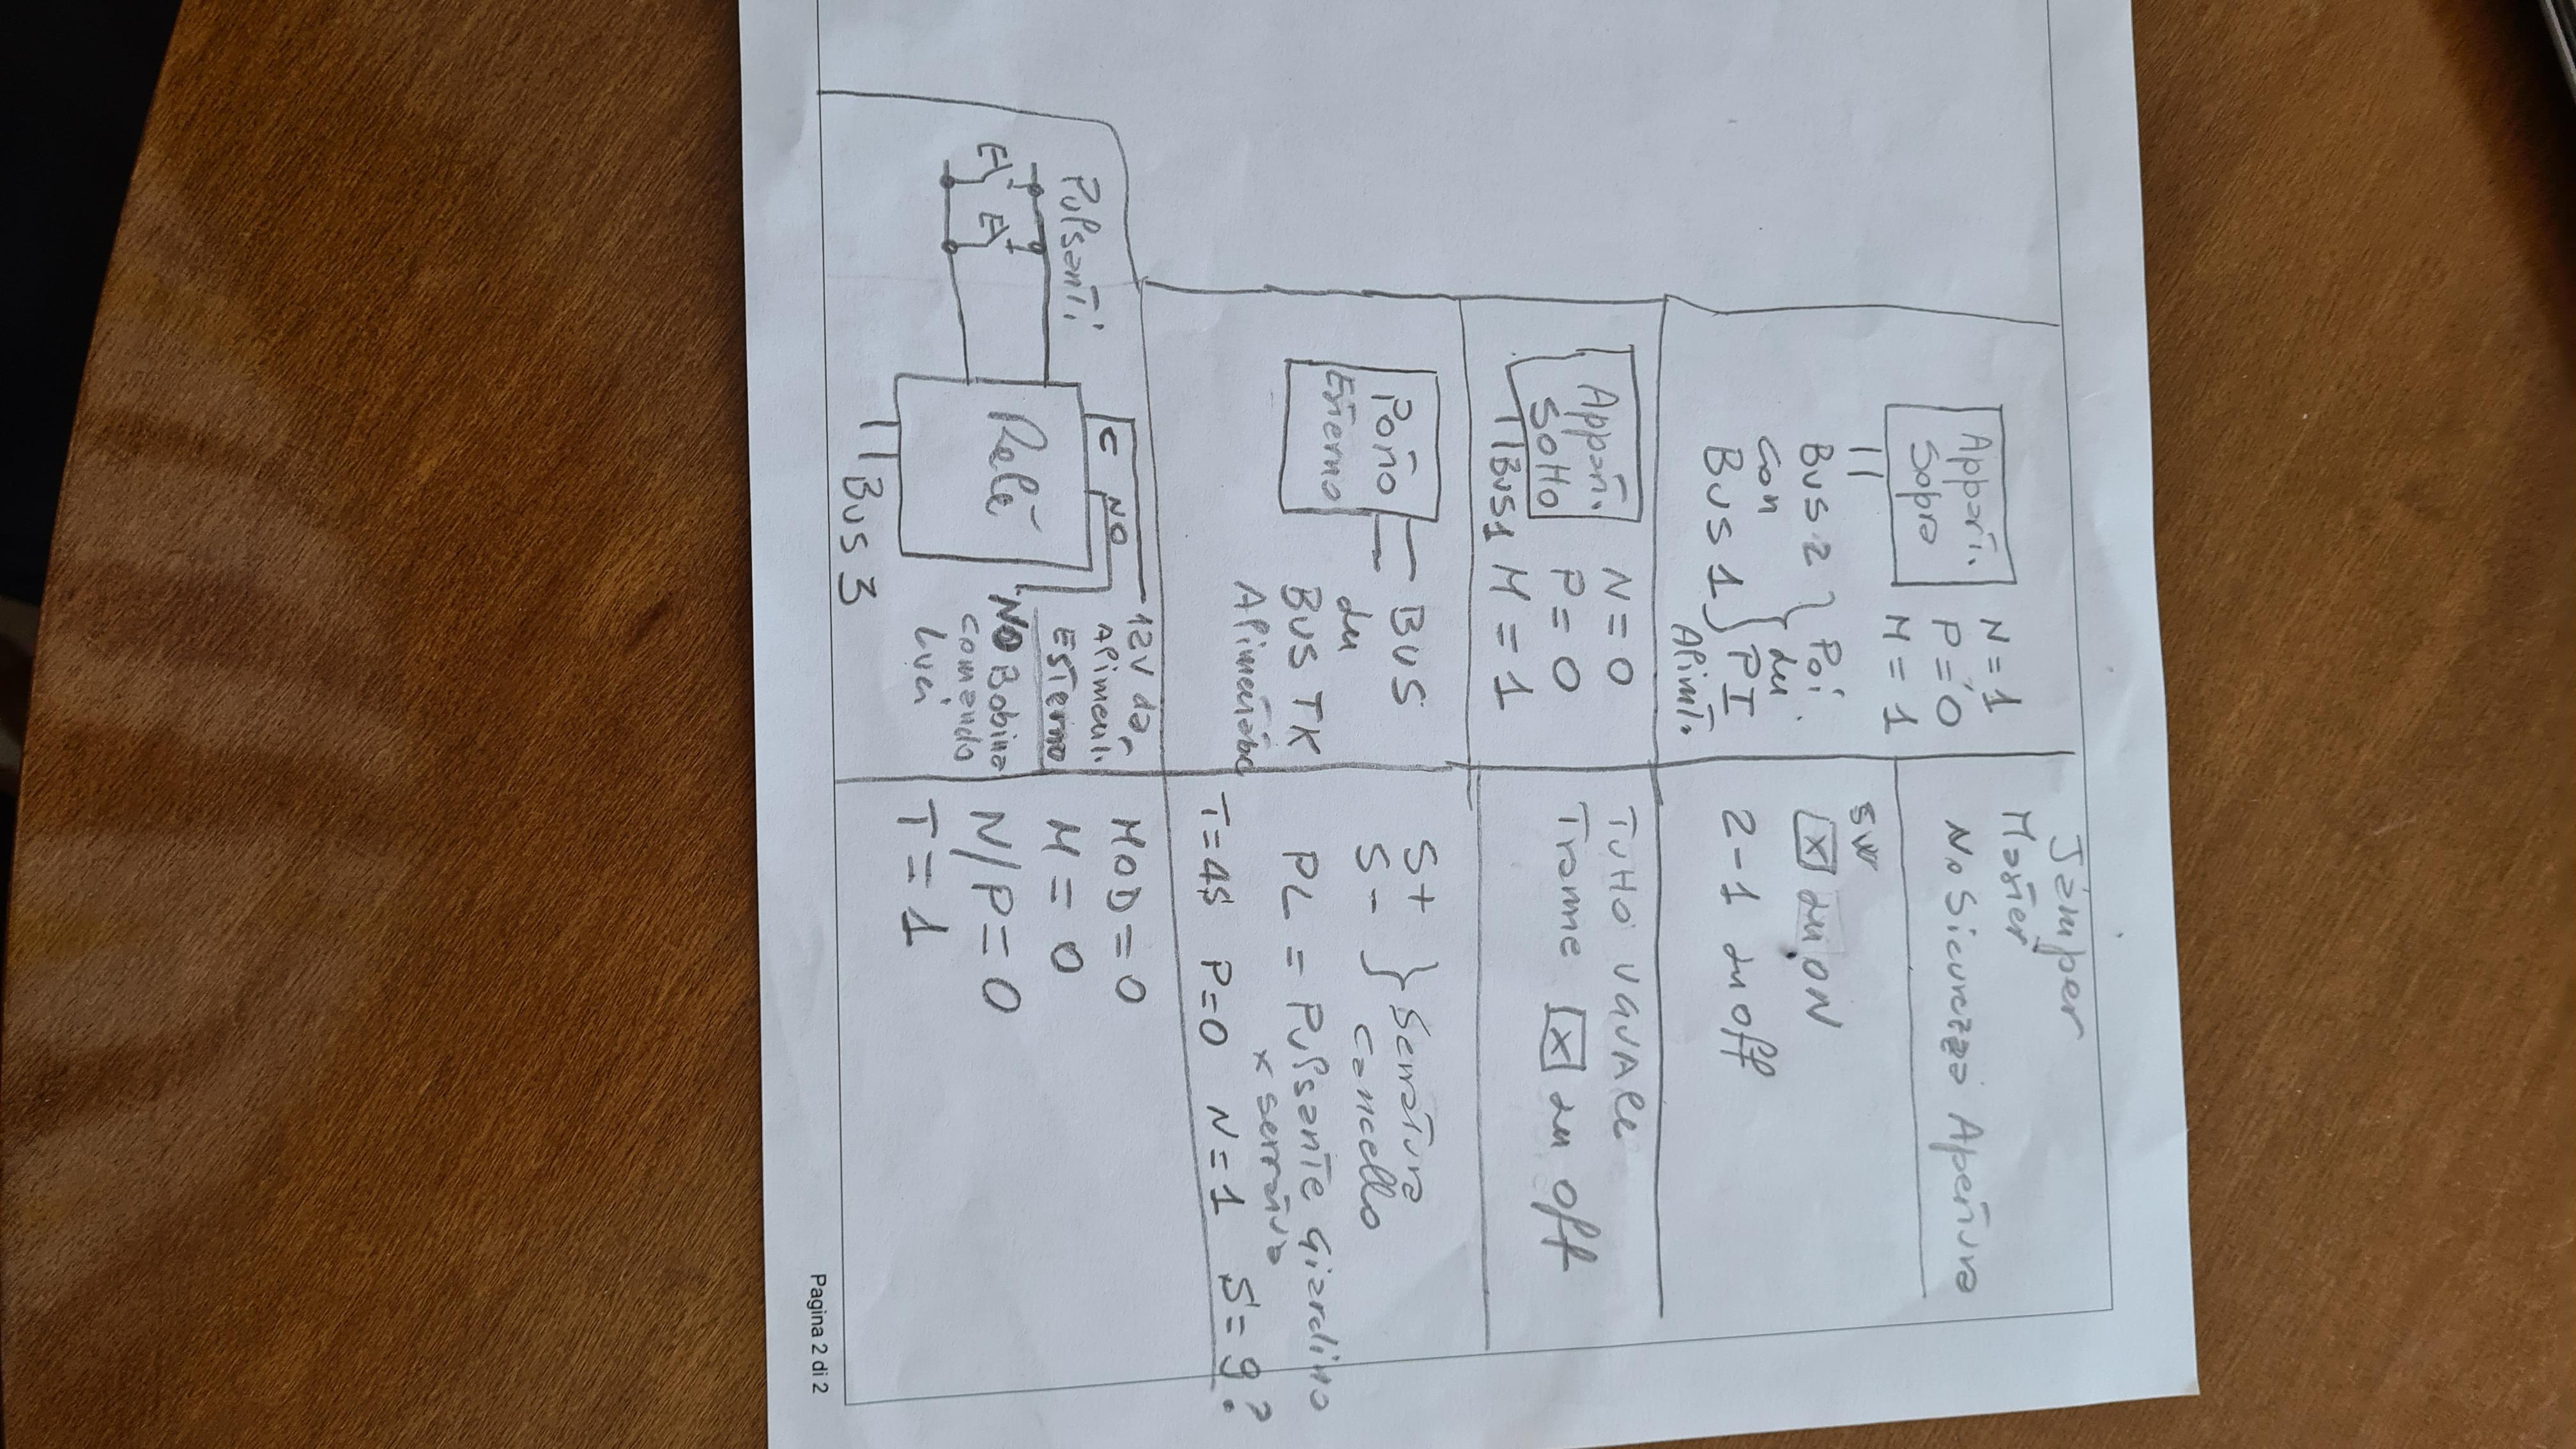 Jamper
Master
No Sicurezza Apertura
Apparт.
Sopra
N=1
P=0
M=1
Bus 2 } Poi
con in
Bus 1 } PI
Alimt.
SW
X in ON
2-1 in off
Appart.
Sotto
Bus1
N=0
P=0
M=1
Tutto uguale
Tranne X in off
Posto
Esterno
BUS
in
BUS TK
Alimentator
S+ } Serratura
S- } Cancello
PL = Pulsante Giardino
x serratura
T=4S P=0 N=1 S=9?
Pulsanti
E E
Relè
C NO
Bus 3
12V da
Aliment.
Esterno
NO Bobina
comando
Luci
MOD=0
M=0
N/P=0
T=1
Pagina 2 di 2